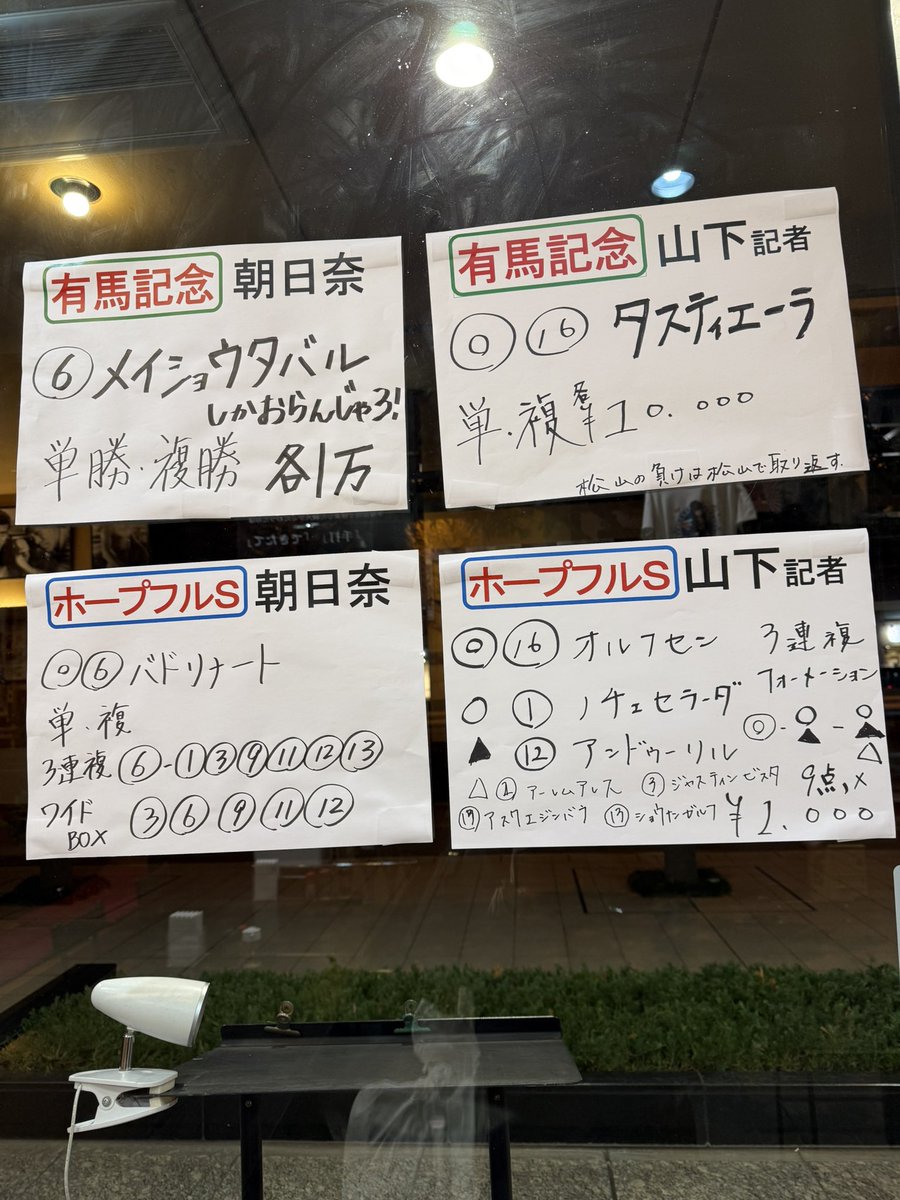 有馬記念 朝日奈
⑥メイショウタバル
しかおらんじゃろ!
単勝・複勝 各1万
有馬記念 山下記者
◎ ⑯ タスティエーラ
単・複 各¥10.000
松山の負けは松山で取り返す.
ホープフルS 朝日奈
◎⑥バドリナート
単・複
3連複⑥-①③⑨⑪⑫⑬
ワイド
BOX ③⑥⑨⑪⑫
ホープフルS 山下記者
◎ ⑯ オルフセン 3連複
フォーメーション
○ ① ノチェセラーダ ◎-○▲-○▲△
▲ ⑫ アンドゥーリル
△ ② アーレムアレス ③ ジャスティンビスタ 9点,×
アスクエジンバラ ⑬ ショウナンガルフ ¥1.000